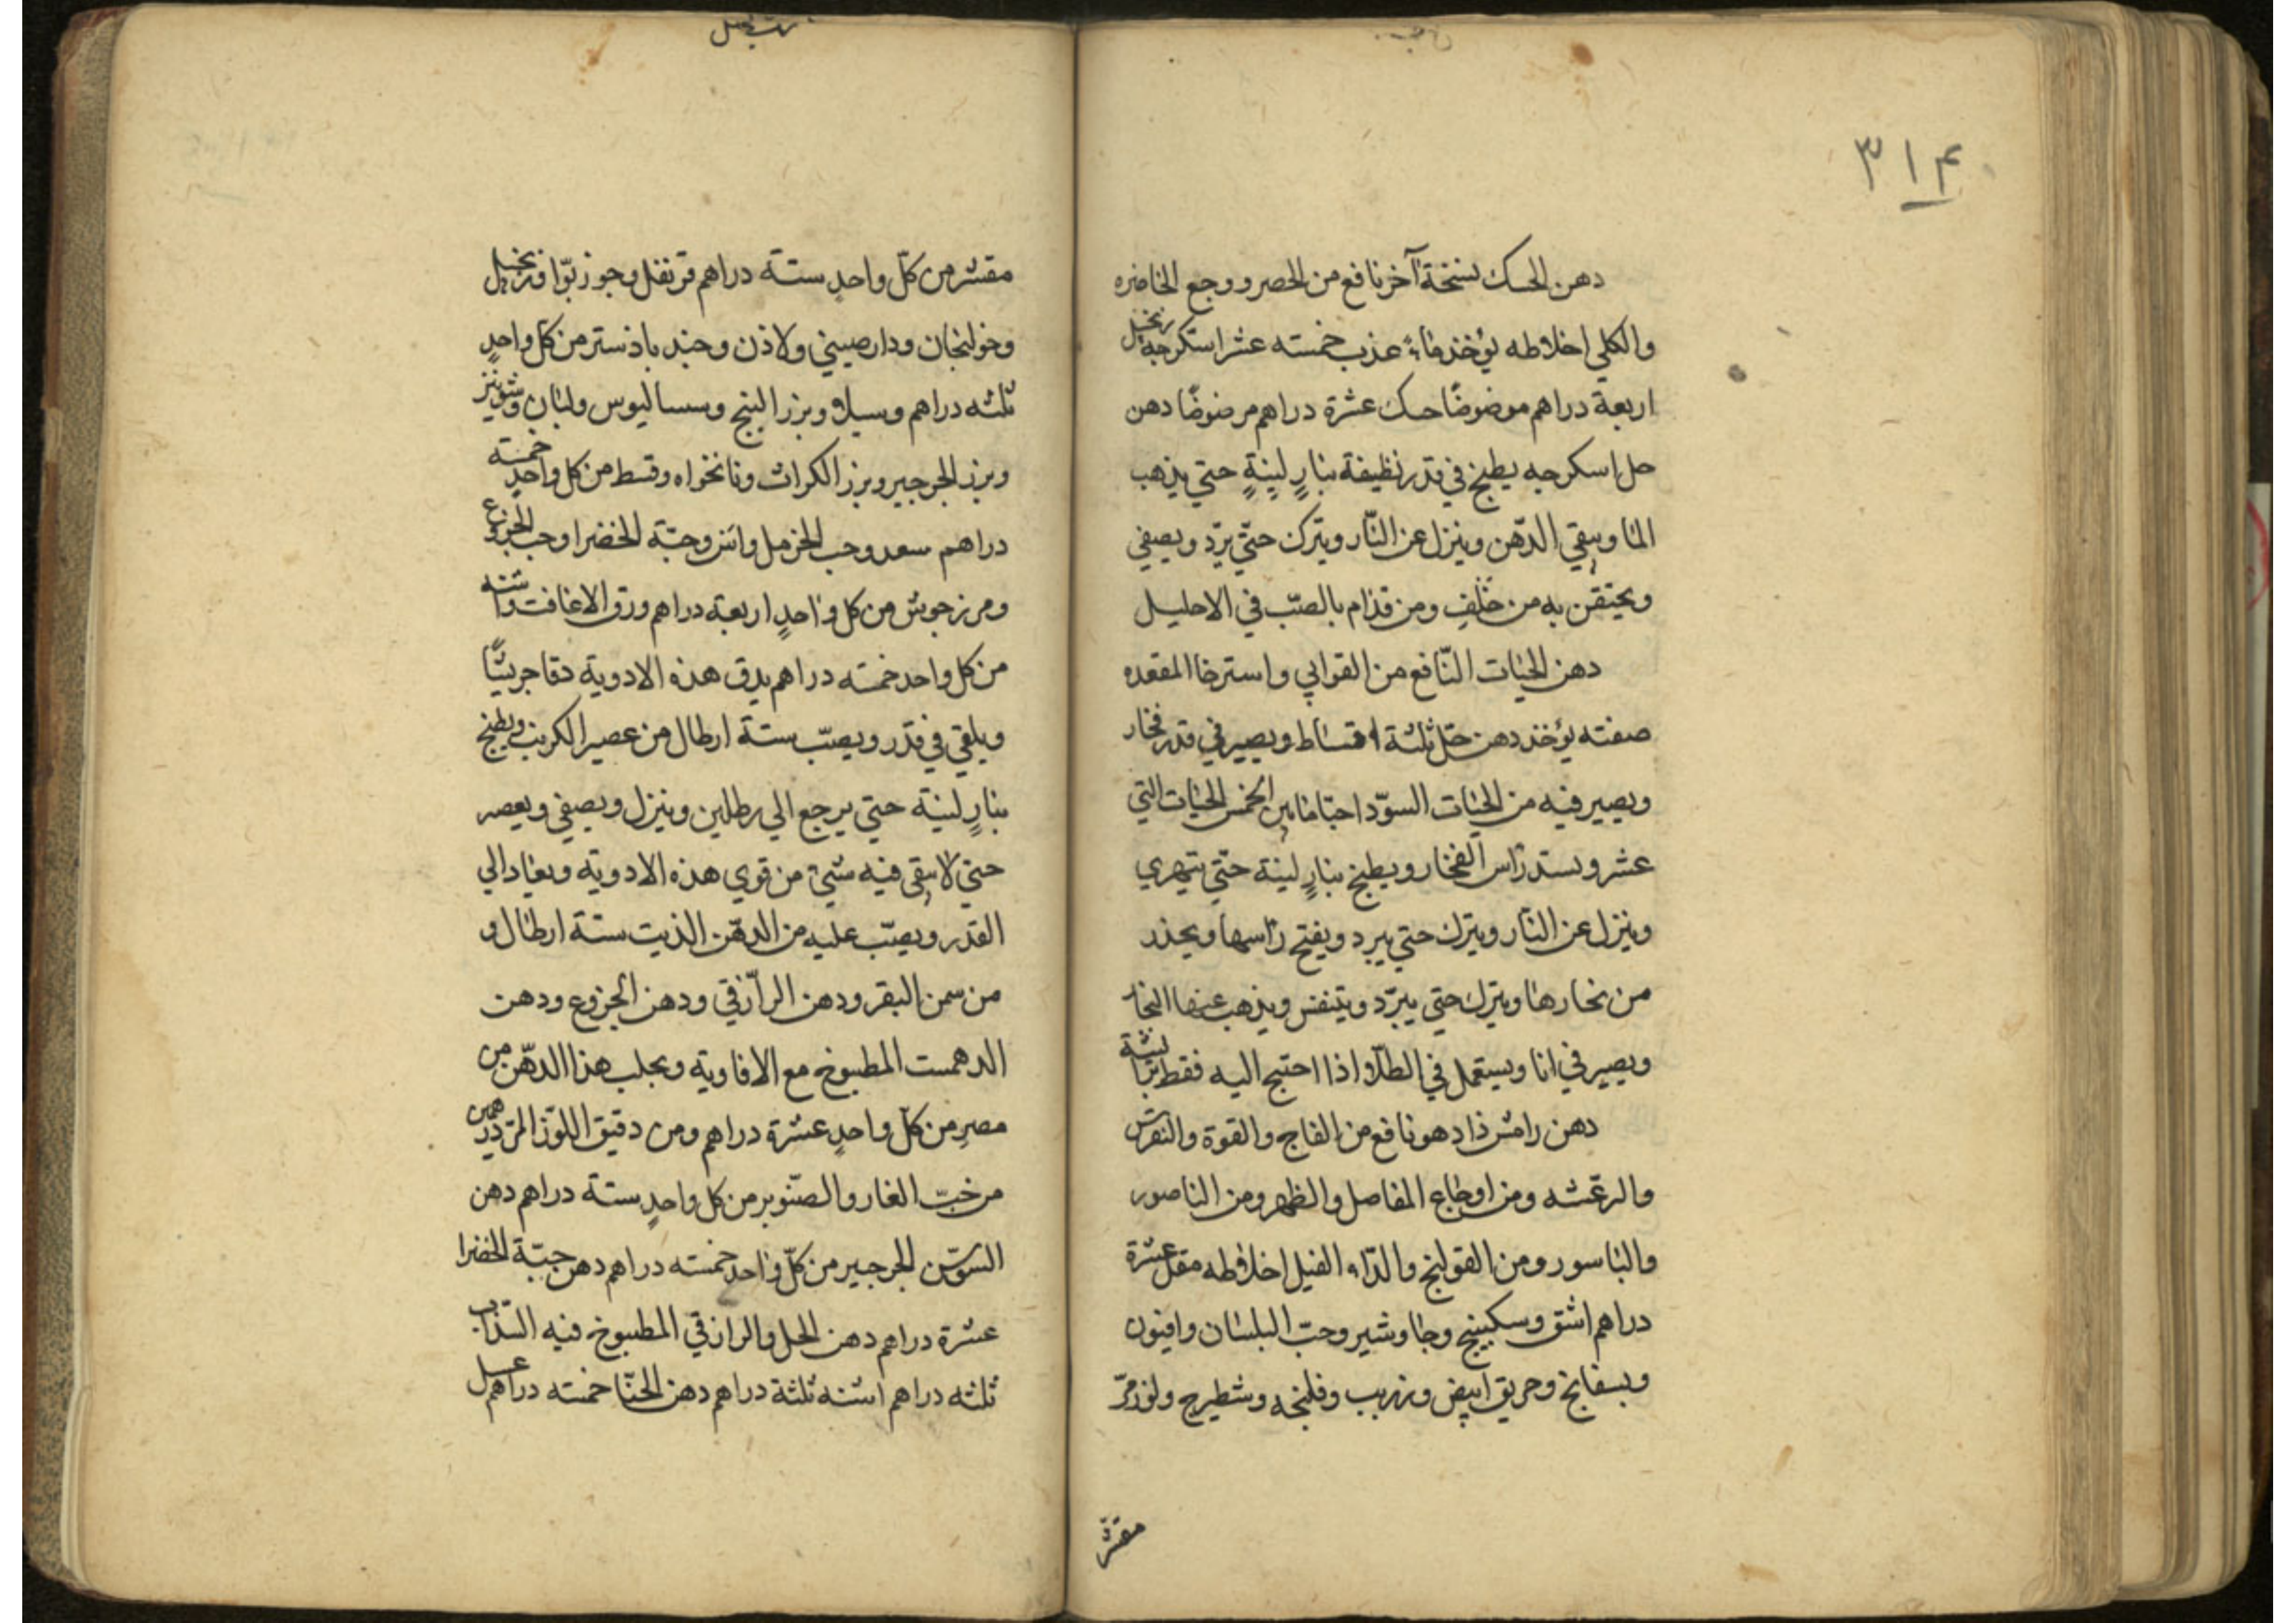 ٣١٤
دهن الحسك نسخة آخر نافع من الحصر ووجع الخاضره
والكلي اخلاطه يؤخذ ماء عذب خمسته عشر اسكرجه زنجبيل
اربعة دراهم موضوضًا حسك عشرة دراهم مرضوضًا دهن
حل اسكرجه يطبخ في قدر نظيفة بنارٍ لينةٍ حتي يذهب
الما ويبقي الدّهن وينزل عن النّار ويترك حتّي يبرّد ويصفي
ويحتقن به من خلفٍ ومن قدّام بالصبّ في الاحليل
دهن الحيات النّافع من القوابي واسترخا المقعده
صفته يؤخذ دهن حلّ ثلثة اقساط ويصير في قدر فخار
ويصير فيه من الحيات السوّد احيا ما بين الخمس الحيات التي
عشر ويسد رأس الفخار ويطبخ بنارٍ لينة حتّي يتهري
وينزل عن النّار ويترك حتي يبرد ويفتح رأسها ويحذر
من بخارها ويترك حتي يبرّد ويتنفس ويذهب عنها البخا
ويصير في انا ويستعمل في الطلا اذا احتيج اليه فقط بريشة
دهن رامش ذاد هو نافع من الفاج والقوة والنقرس
والرعّشه ومن اوجاع المفاصل والظهر ومن الناصور
والباسور ومن القولنج والدّاء الفيل اخلاطه مقل عشرة
دراهم اشق وسكبينج وجاوشير وحبّ البلسان وافيون
وبسفايخ وحريق ابيض وزريب وفلنجه وشطيرج ولوز مرّ
مقشر
مقشر من كلّ واحدٍ ستة دراهم قرنفل وجوز بوّا وزنجبيل
وخولنجان ودارصيني ولاذن وجند بادستر من كل واحدٍ
ثلثه دراهم وسيلا وبزر البنج وسساليوس ولبان وشونيز
وبزر الجرجير وبزر الكراث ونانخواه وقسط من كل واحدٍ خمسته
دراهم سعد وحب الخرمل وانس وحبّة الخضرا وحب الخروع
ومرزجوش من كل واحدٍ اربعة دراهم ورق الاغافت واشنه
من كل واحد خمسته دراهم يدق هذه الادوية دقا جريشًا
ويلقي في قدر ويصبّ ستة ارطال من عصير الكرنب ويطبخ
بنارٍ لينة حتي يرجع الي رطلين وينزل ويصفي ويعصر
حتي لا يبقي فيه شيئ من قوي هذه الادوية ويعاد الي
القدر ويصبّ عليه من الدهّن الذيت ستة ارطال و
من سمن البقر ودهن الرازقي ودهن الخروع ودهن
الدهمست المطبوخ مع الافاوية ويجلب هذا الدهّن من
مصرٍ من كلّ واحدٍ عشرة دراهم ومن دقيق اللوّز المرّ درهمين
من حبّ الغار والصنّوبر من كل واحدٍ ستة دراهم دهن
السوّسن الجرجير من كلّ واحد خمسته دراهم دهن حبّة الخضرا
عشرة دراهم دهن الحل والرازقي المطبوخ فيه السّذاب
ثلثه دراهم اشنه ثلثة دراهم دهن الحنّا خمسته دراهم عسل